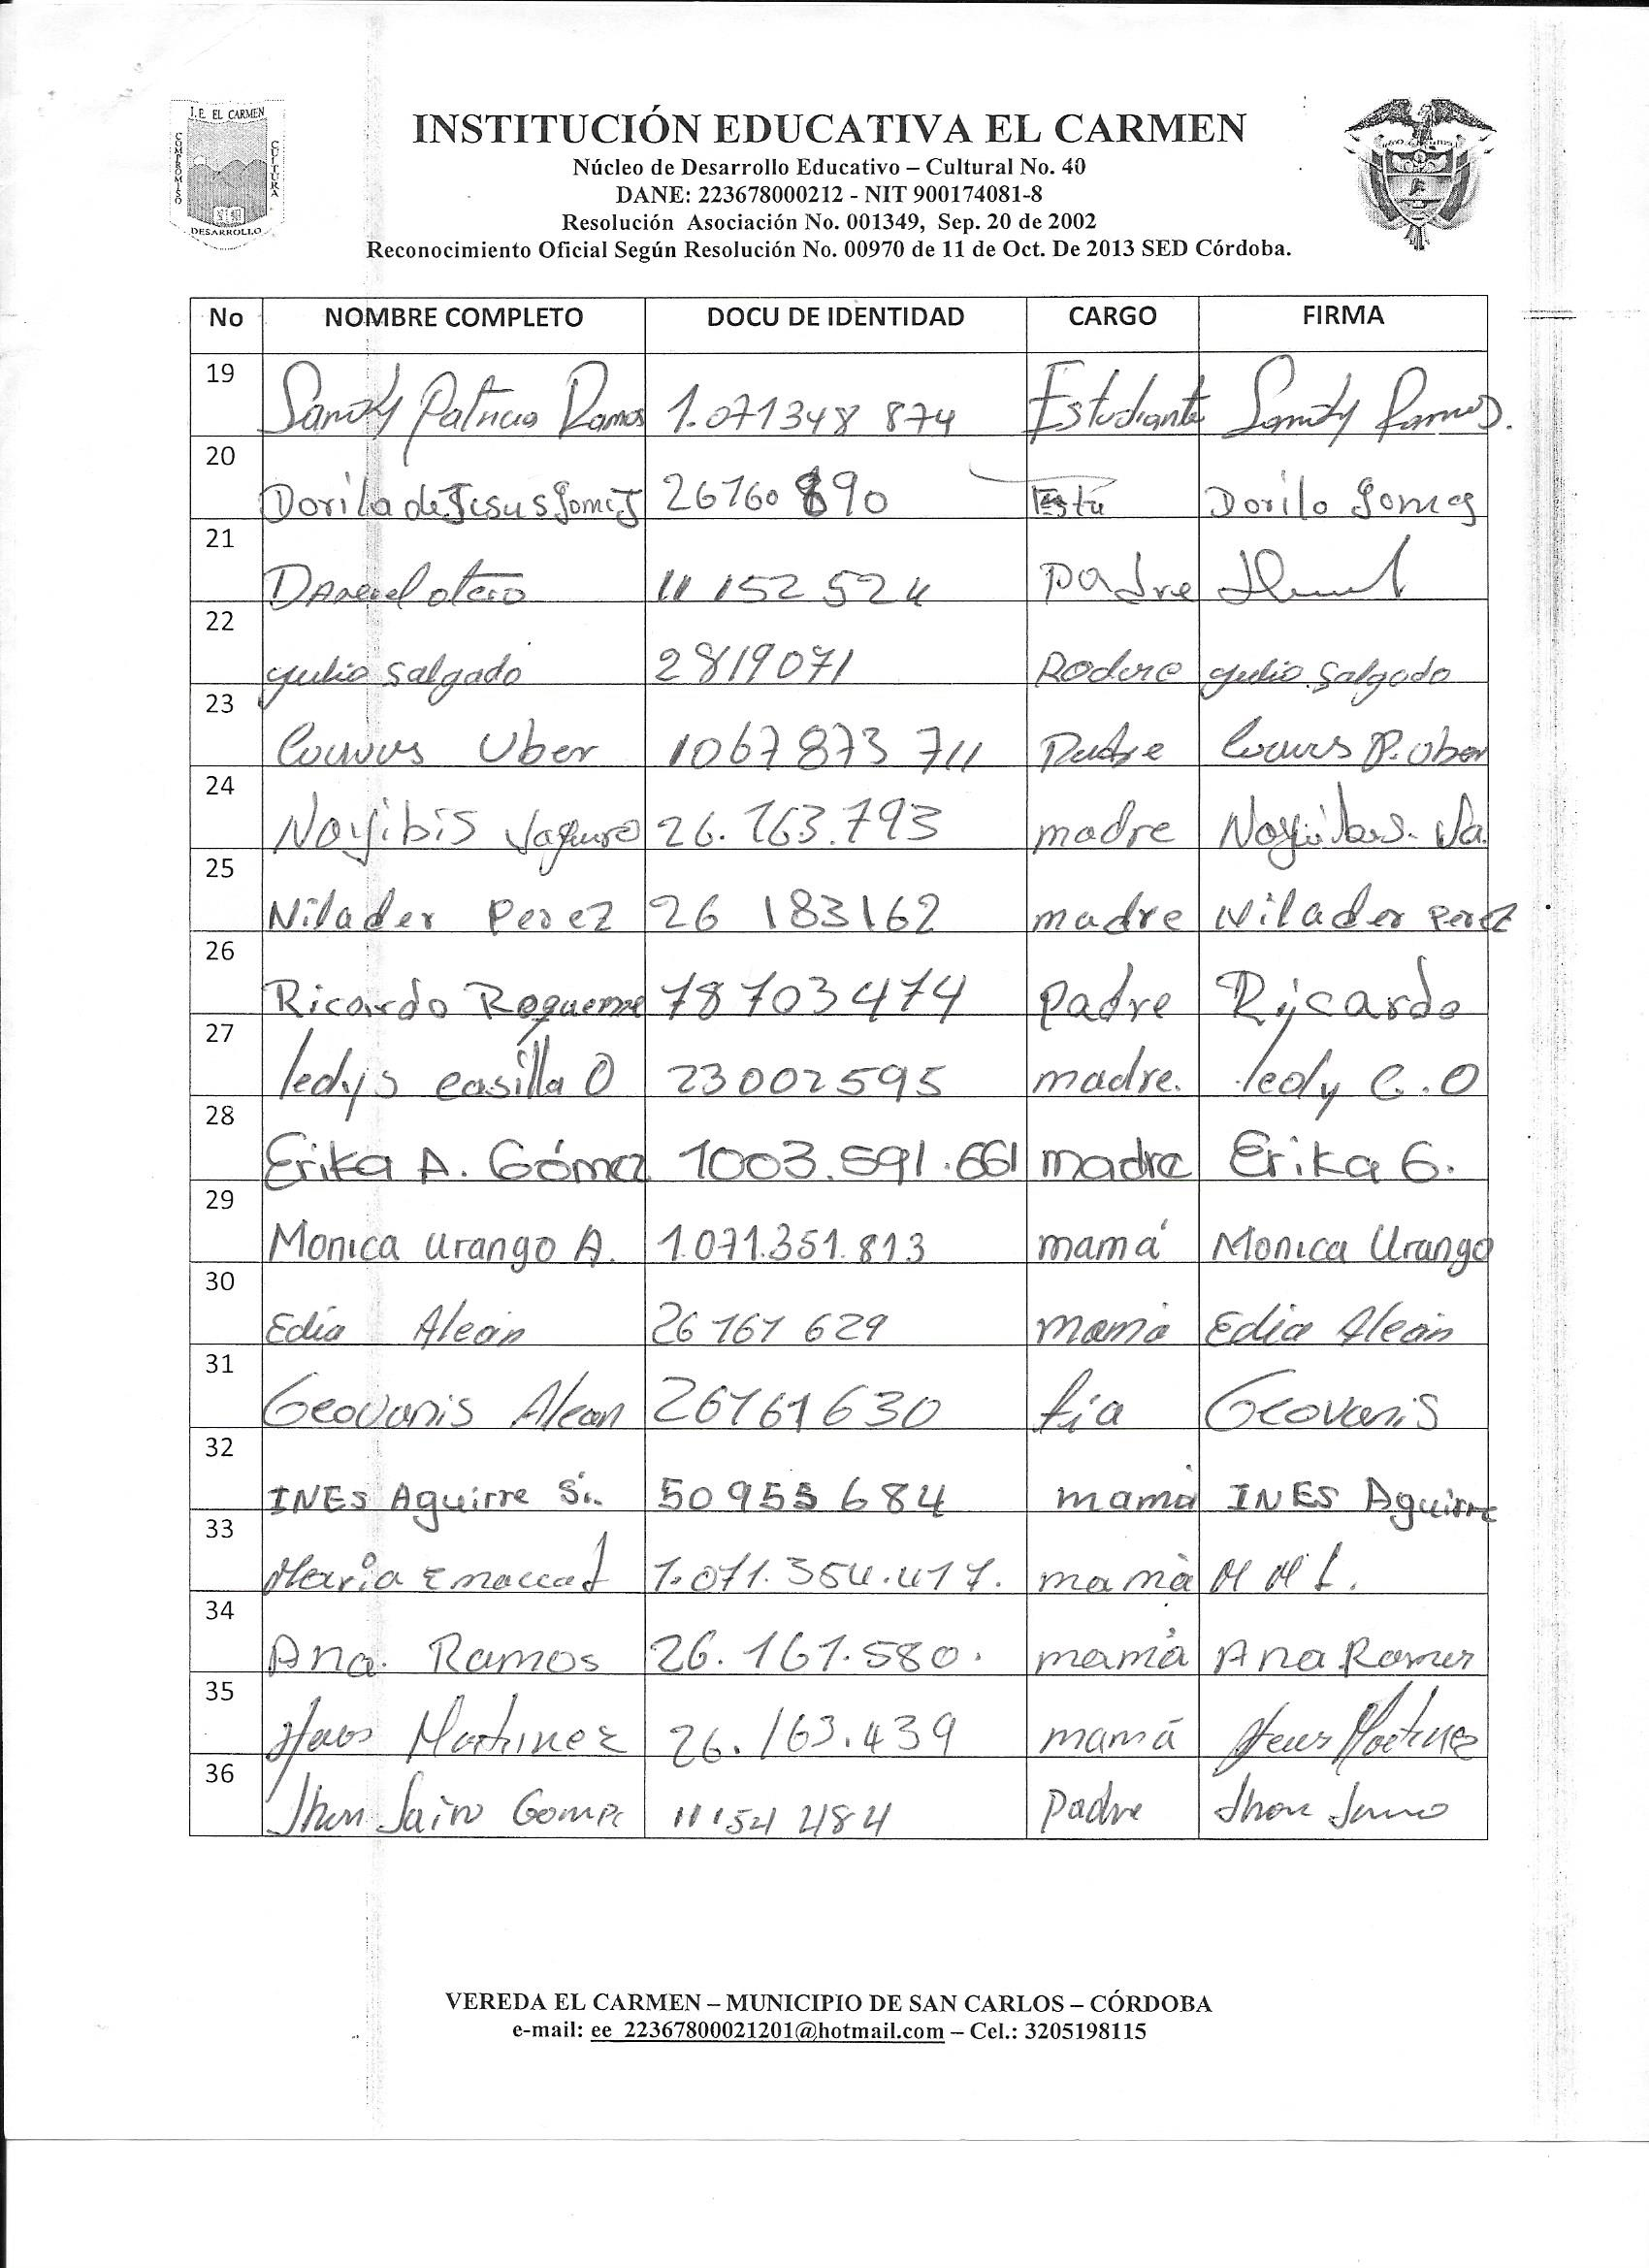 I.E. EL CARMEN
COMPROMISO
CULTURA
DESARROLLO
INSTITUCIÓN EDUCATIVA EL CARMEN
Núcleo de Desarrollo Educativo – Cultural No. 40
DANE: 223678000212 - NIT 900174081-8
Resolución Asociación No. 001349, Sep. 20 de 2002
Reconocimiento Oficial Según Resolución No. 00970 de 11 de Oct. De 2013 SED Córdoba.
No NOMBRE COMPLETO DOCU DE IDENTIDAD CARGO FIRMA
19 Sandy Patricia Ramos 1.071348 874 Estudiante Sandy Ramos.
20 Dorila de Jesus 26160 890 Estu Dorila Gomes
21 Daniel otero 11 152 524 Padre
22 yulio Salgado 2819071 yulio Salgado
23 Uber 1067873 711 Padre
24 Nayibis 26.163.793 madre Nayibis. Va.
25 Nilader Perez 26 183162 madre Nilader Perez
26 Ricardo 78703474 padre Ricardo
27 ledys casilla O 23002595 madre. ledy C.O
28 Erika A. Gómez 1003.591.661 madre Erika G.
29 Monica Urango A. 1.071.351.813 mamá Monica Urango
30 Edia Alean 26 161 629 mamá Edia Alean
31 Geovanis Alean 26161630 tía Geovanis
32 INES Aguirre S. 50955684 mamá INES Aguirre
33 Maria 1.071.354.417. mamà M M L.
34 Ana. Ramos 26.161.580. mamá Ana Ramos
35 Martinez 26.163.439 mamá Martinez
36 Jhon Jairo Gomez 11154484 Padre Jhon Jairo
VEREDA EL CARMEN – MUNICIPIO DE SAN CARLOS – CÓRDOBA
e-mail: ee_22367800021201@hotmail.com – Cel.: 3205198115